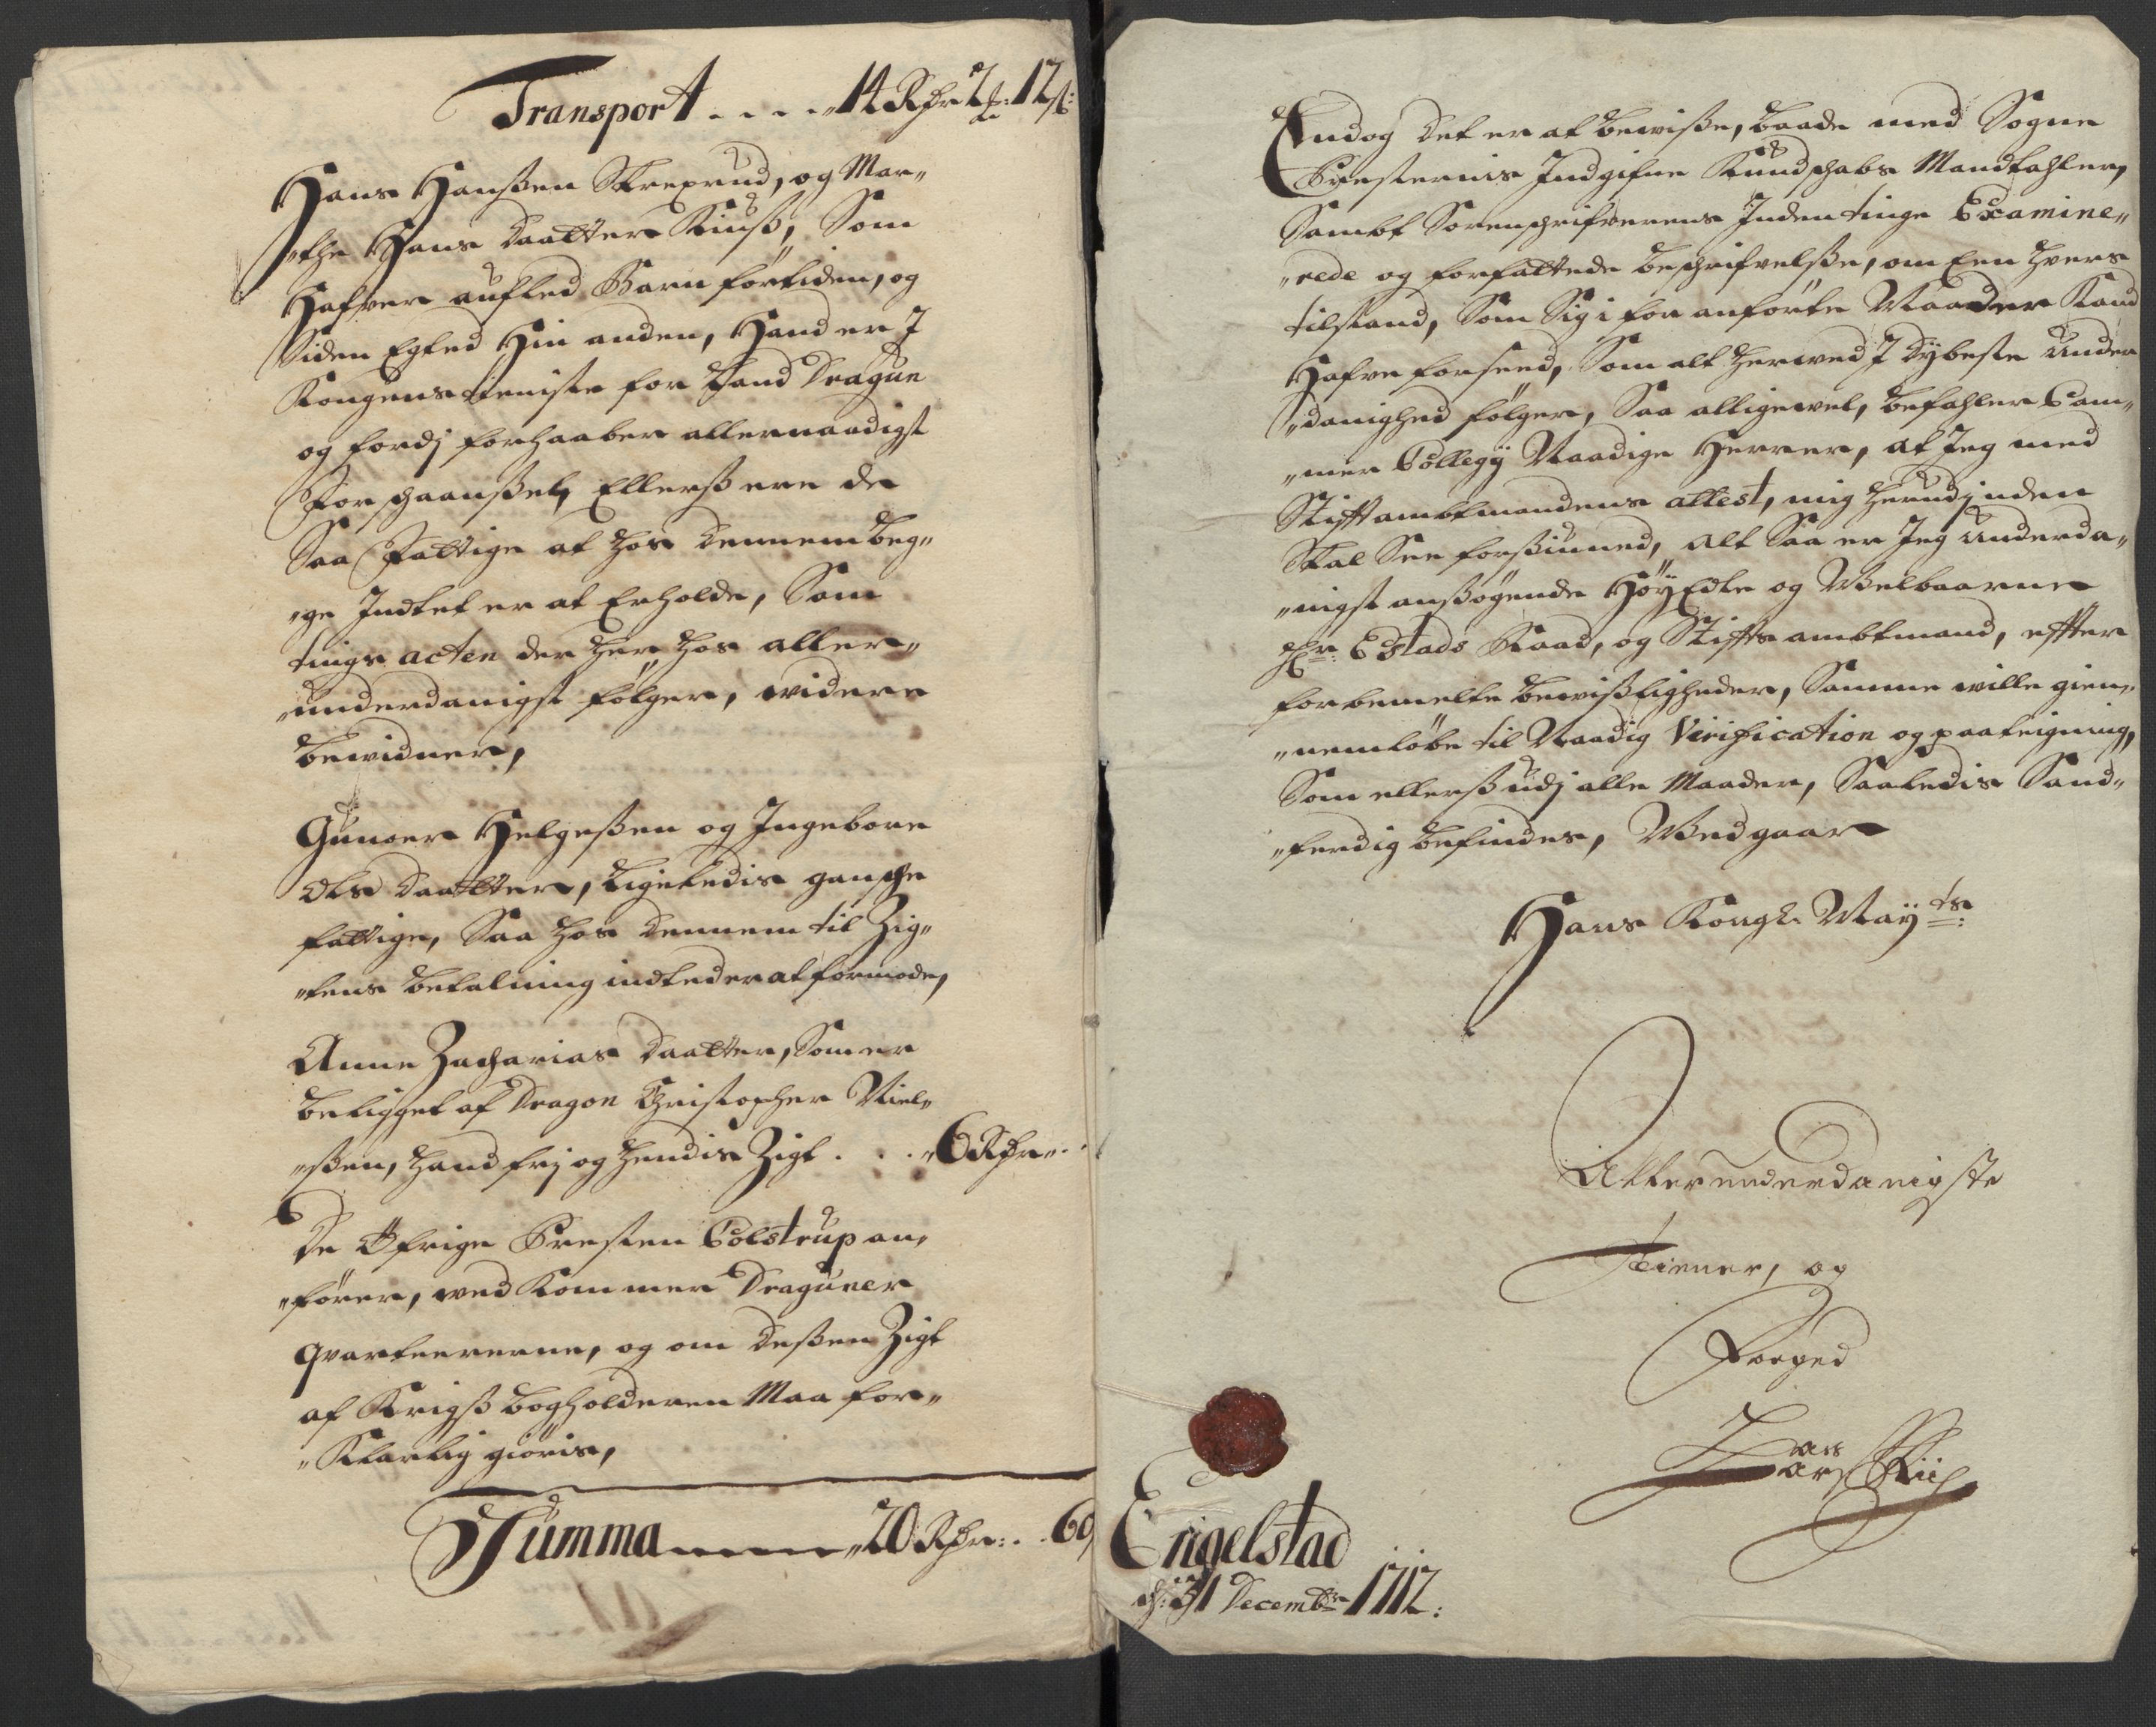 Transport . . . . 14 Rdr 2 ₻: 12 s:
Hans Hanßen Skreprud, og Mar„
„the Hans daatter Kiuß, Som
Hafver aufled Barn förtiden, og
Siden Egted Hin anden, Hand er I
Kongens tieniste for Land Dragun
og fordj forhaaber allernaadigst
Forschaanßel, Ellerß ere de
Saa Fattige at hos dennem beg„
„ge Indtet er at Erholde, Som
tings acten der her hos aller„
„underdanigst fölger, widere
bewidner,
Gunder Helgeßen og Ingebore
Ols daatter, Ligeledis gansche
fattige, Saa hos dennem til Zig„
„tens betalning indted er at formode,
Anne Zacharias daatter, Som er
beligget af Dragon Christopher Niel„
„ßen, hand frj og hendis Zigt . . . „6 Rdr „ .
De Öfrige Presten Colstrup an„
„förer, wed Kommer Draguner
qvarteererne, og om deßen Zigt
af Krigß bogholderen Maa for„
„Klarlig giöris,
Summa „20 Rdr: . . 60
Endog det er at bewiße, baade med Sogne
Presternis Indgifne Kundschabs Mandtahler,
Sambt Sorenschrifverens Inden tinge Examine„
„rede og forfattede beschrifvelße, om Een hvers
tilstand, Som Sig i for anförte Maader Kand
Hafve forseed, Som alt herwed I dÿbeste Under
„danighed fölger, Saa alligewel, befahler Cam„
„mer Collegÿ Naadige Herrer, at Jeg med
Stifftambtmandens attest, mig herudj inden
Skal See forßiuned, alt Saa er Jeg Underda„
„nigst anßögende HöÿEdle og Welbaarne
Hr: Estads Raad, og Stiffts ambtmand, effter
forbemelte bewißligheder, Samme wille gien„
„nemlöbe til Naadig Virification og paateigning,
Som ellerß udj alle Maader, Saaledis Sand„
„ferdig befindes, Wed gaar
Hans Kongl. Maÿts:
Allerunderdanigste
Tienner, og
Foeged
Lars
Engelstad
d: 31 Decembr 1712: